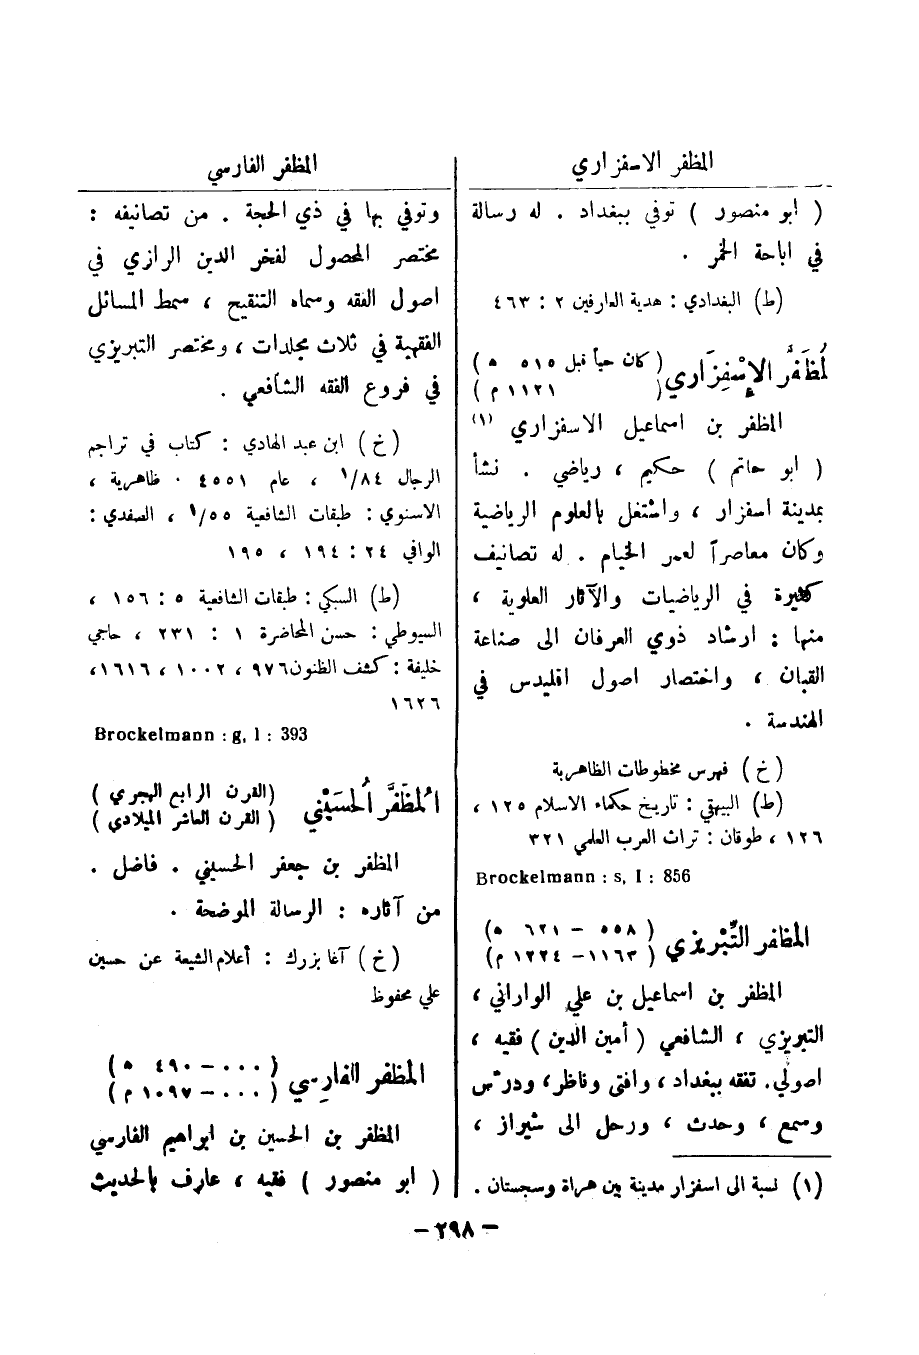 المظفر الاسفزاري
( ابو منصور ) توفي ببغداد . له رسالة
في اباحة الخمر .
(ط) البغدادي : هدية العارفين ٢ : ٤٦٣
لمُظَفَّر الإِسْفِزَاري ( كان حياً قبل ٥١٥ ه )
( ١١٢١ م )
المظفر بن اسماعيل الاسفزاري (١)
( ابو حاتم ) حكيم ، رياضي . نشأ
بمدينة اسفزار ، واشتغل بالعلوم الرياضية
وكان معاصراً لعمر الخيام . له تصانيف
كثيرة في الرياضيات والآثار العلوية ،
منها : ارشاد ذوي العرفان الى صناعة
القبان ، واختصار اصول اقليدس في
الهندسة .
(خ) فهرس مخطوطات الظاهرية
(ط) البيهقي : تاريخ حكماء الاسلام ١٢٥ ،
١٢٦ ، طوقان : تراث العرب العلمي ٣٢١
Brockelmann : s, I : 856
المظفر التِّبْريزي ( ٥٥٨ – ٦٢١ ه )
( ١١٦٣ – ١٢٢٤ م )
المظفر بن اسماعيل بن علي الواراني ،
التبريزي ، الشافعي ( أمين الدين ) فقيه ،
اصولي. تفقه ببغداد ، وافتى وناظر ، ودرّس
وسمع ، وحدث ، ورحل الى شيراز ،
(١) نسبة الى اسفزار مدينة بين هراة وسجستان .
المظفر الفارسي
وتوفي بها في ذي الحجة . من تصانيفه :
مختصر المحصول لفخر الدين الرازي في
اصول الفقه وسماه التنقيح ، سمط المسائل
الفقهية في ثلاث مجلدات ، ومختصر التبريزي
في فروع الفقه الشافعي .
(خ) ابن عبد الهادي : كتاب في تراجم
الرجال ٨٤/١ ، عام ٤٥٥١ . ظاهرية ،
الاسنوي : طبقات الشافعية ٥٥/١ ، الصفدي :
الوافي ٢٤ : ١٩٤ ، ١٩٥
(ط) السبكي : طبقات الشافعية ٥ : ١٥٦ ،
السيوطي : حسن المحاضرة ١ : ٢٣١ ، حاجي
خليفة : كشف الظنون ٩٧٦ ، ١٠٠٢ ، ١٦١٦،
١٦٢٦
Brockelmann : g, I : 393
المظفَّر الُحسَيْني (القرن الرابع الهجري )
( القرن العاشر الميلادي )
المظفر بن جعفر الحسيني . فاضل .
من آثاره : الرسالة الموضحة .
(خ) آغا بزرك : أعلام الشيعة عن حسين
علي محفوظ
المظفر الفارسي ( ٠٠٠ – ٤٩٠ ه )
( ٠٠٠ – ١٠٩٧ م )
المظفر بن الحسين بن ابراهيم الفارسي
( ابو منصور ) فقيه ، عارف بالحديث
– ٢٩٨ –